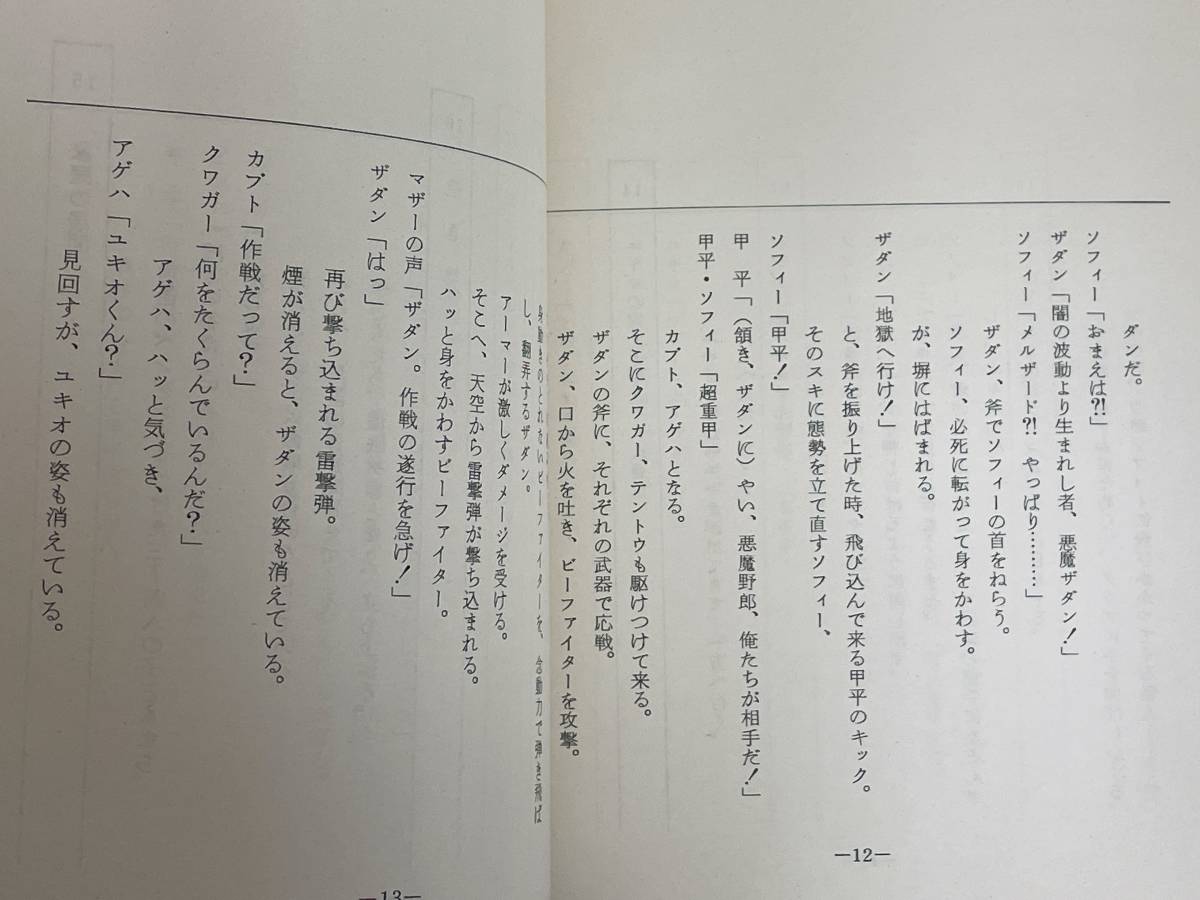 ダンだ。
ソフィー「おまえは⁈」
ザダン「闇の波動より生まれし者、悪魔ザダン！」
ソフィー「メルザード⁈ やっぱり………」
ザダン、斧でソフィーの首をねらう。
ソフィー、必死に転がって身をかわす。
が、塀にはばまれる。
ザダン「地獄へ行け！」
と、斧を振り上げた時、飛び込んで来る甲平のキック。
そのスキに態勢を立て直すソフィー、
ソフィー「甲平！」
甲　平「（頷き、ザダンに）やい、悪魔野郎、俺たちが相手だ！」
甲平・ソフィー「超重甲」
カブト、アゲハとなる。
そこにクワガー、テントウも駆けつけて来る。
ザダンの斧に、それぞれの武器で応戦。
ザダン、口から火を吐き、ビーファイターを攻撃。
—12—
身動きのとれないビーファイターを、念動力で弾き飛ば
し、翻弄するザダン。
アーマーが激しくダメージを受ける。
そこへ、天空から雷撃弾が撃ち込まれる。
ハッと身をかわすビーファイター。
マザーの声「ザダン。作戦の遂行を急げ！」
ザダン「はっ」
再び撃ち込まれる雷撃弾。
煙が消えると、ザダンの姿も消えている。
カブト「作戦だって？」
クワガー「何をたくらんでいるんだ？」
アゲハ、ハッと気づき、
アゲハ「ユキオくん？」
見回すが、ユキオの姿も消えている。
—13—